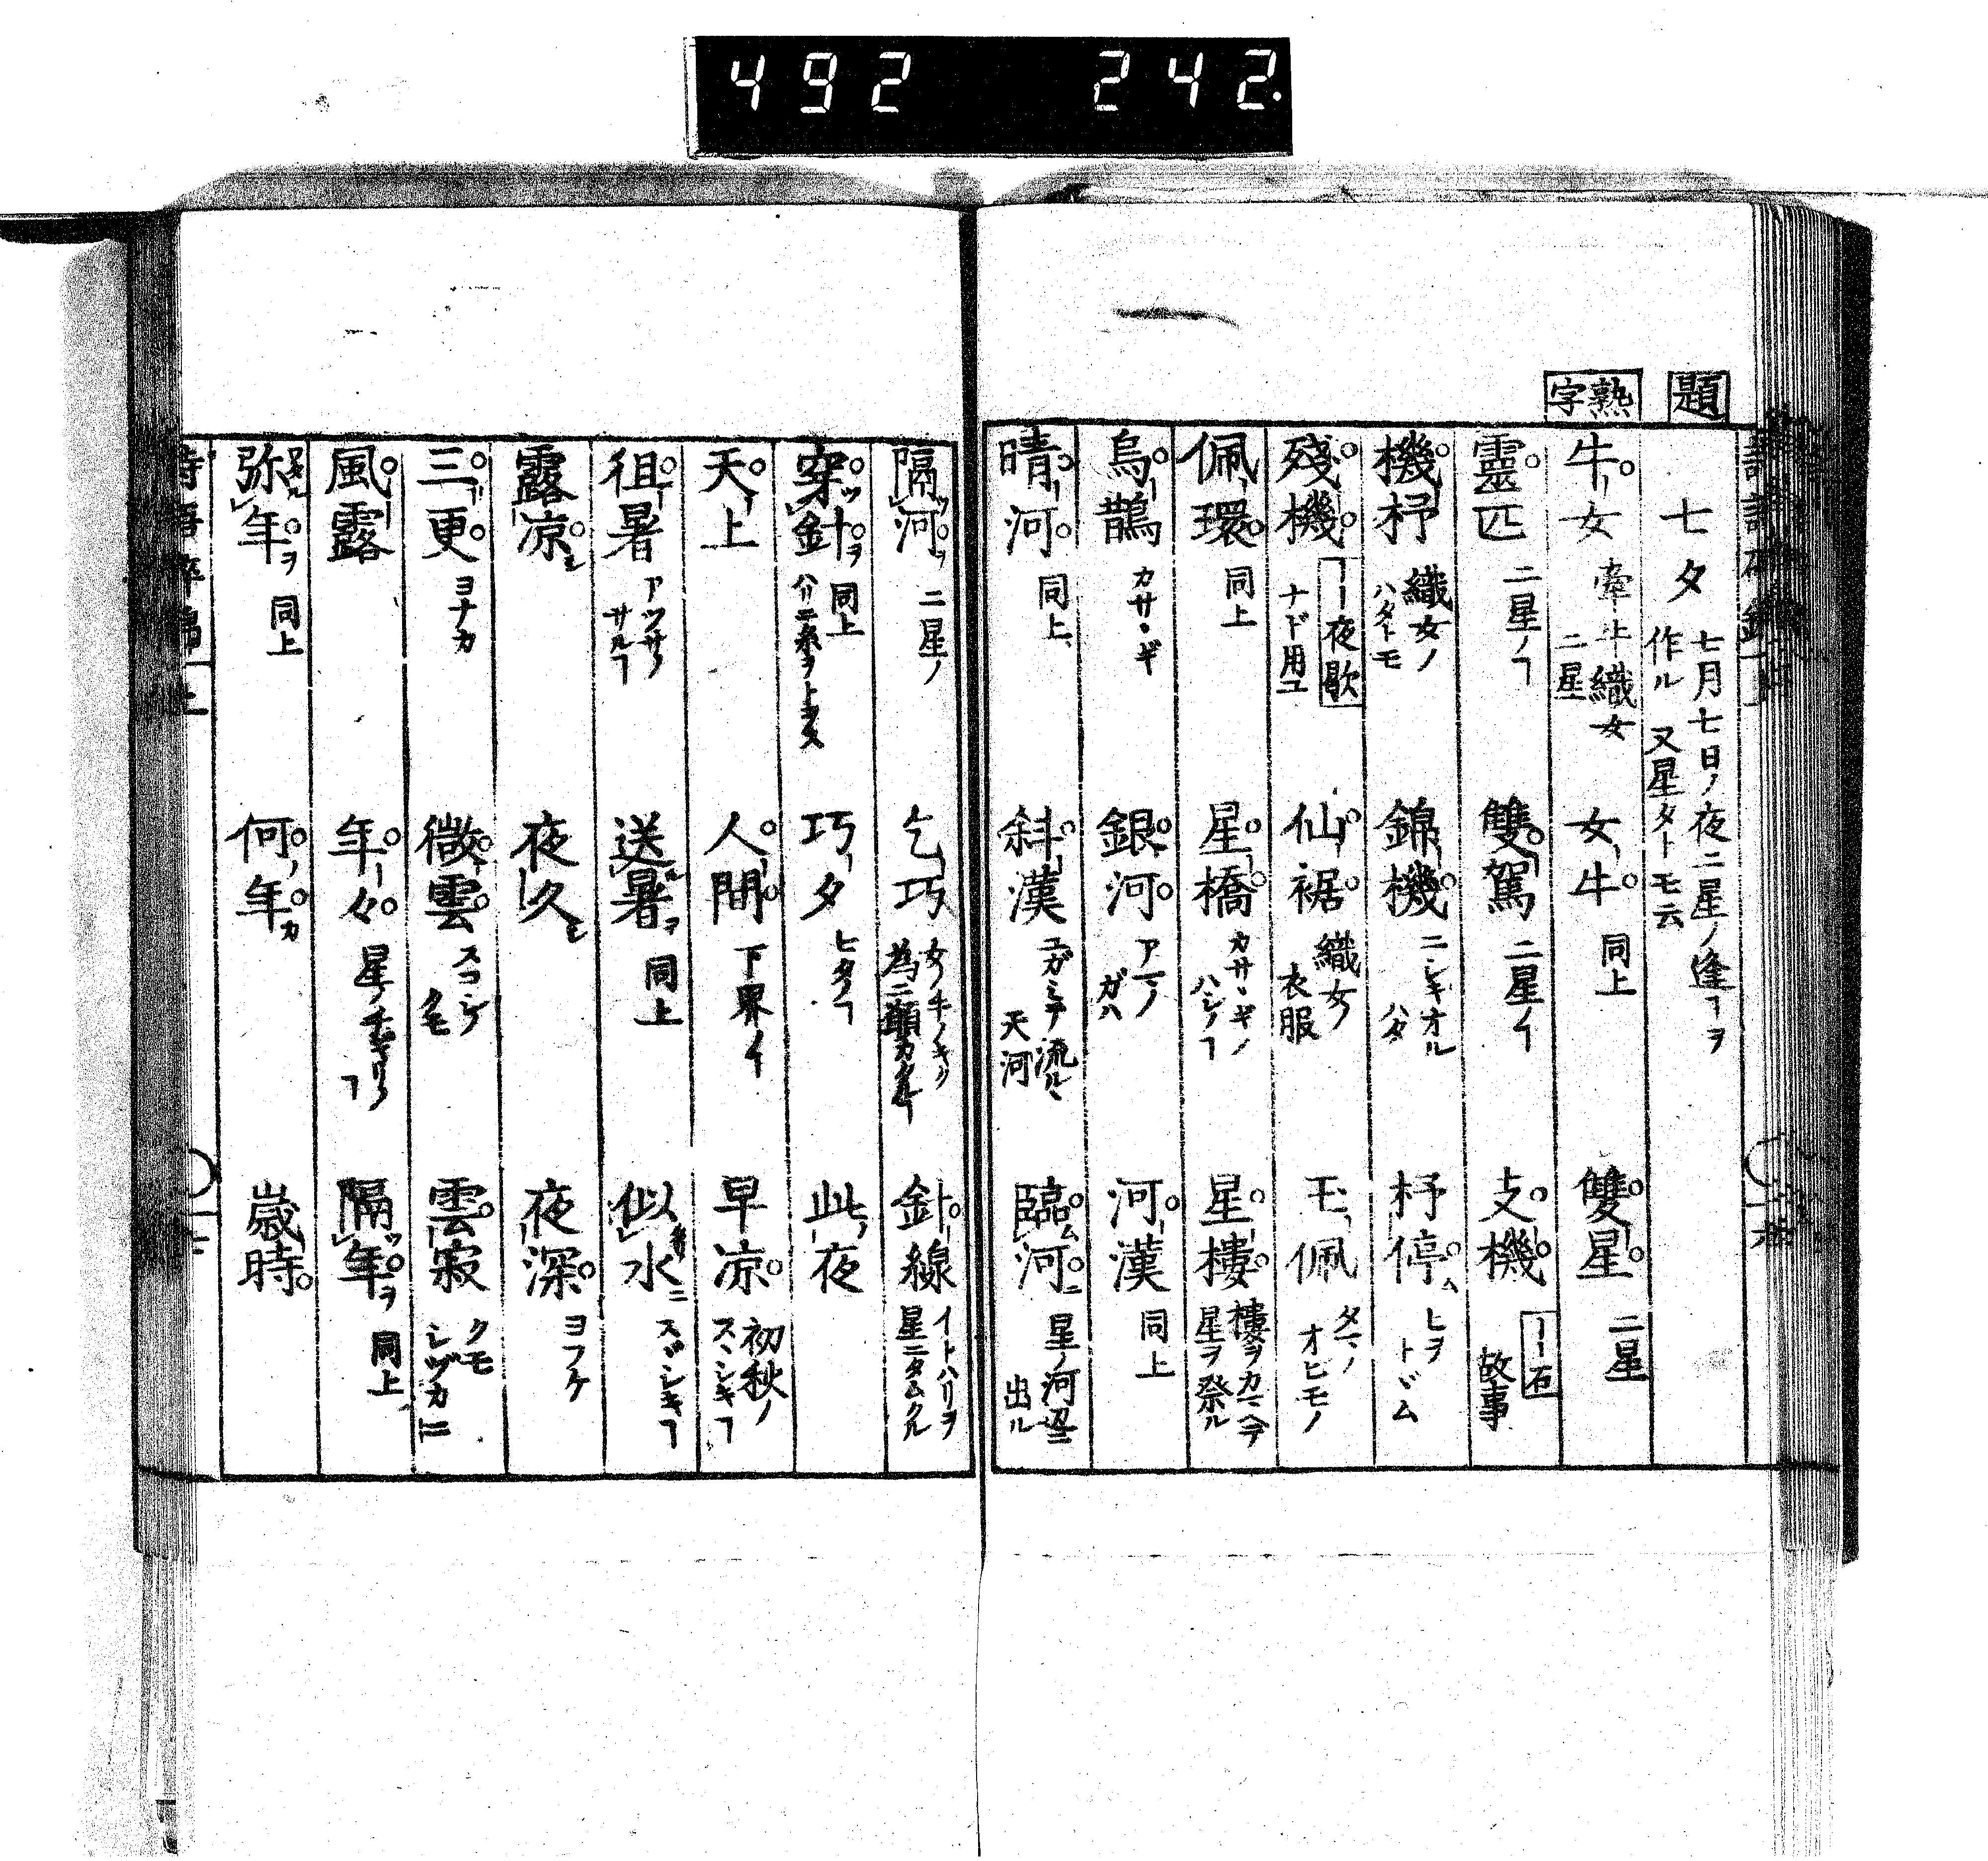 492 242.
題
熟字
七夕 七月七日ノ夜二星ノ逢ヿヲ作ル 又星夕トモ云
牛女 牽牛織女二星
女牛 同上
雙星 二星
靈匹 二星ノヿ
雙駕 二星ノヿ
支機 ――石 故事
機杼 織女ノハタトモ
錦機 ニシキオルハタ
杼停 ヒヲトヾム
殘機 ――夜歇ナド用ユ
仙裾 織女ノ衣服
玉佩 タマノオヒモノ
佩環 同上
星橋 カサヽギノハシノヿ
星樓 樓ヲカマヘテ星ヲ祭ル
烏鵲 カサヽギ
銀河 アマノガハ
河漢 同上
晴河 同上
斜漢 ユガミテ流ルヽ天河
臨河 星ノ河辺ニ出ル
隔河 二星ノ
乞巧
針線 イトハリヲ星ニタムクル
穿針 同上 ハリニ糸ヲトヲス
巧夕
此夜
天上
人間 下界ノヿ
早凉 初秋ノスヽシキヿ
徂暑 アツサノサルヿ
送暑 同上
似水 スヾシキヿ
露凉
夜久
夜深 ヨフケ
三更 ヨナカ
微雲 スコシノクモ
雲寂 クモシヅカニ
風露
年々
隔年 同上
弥年 同上
何年
歳時